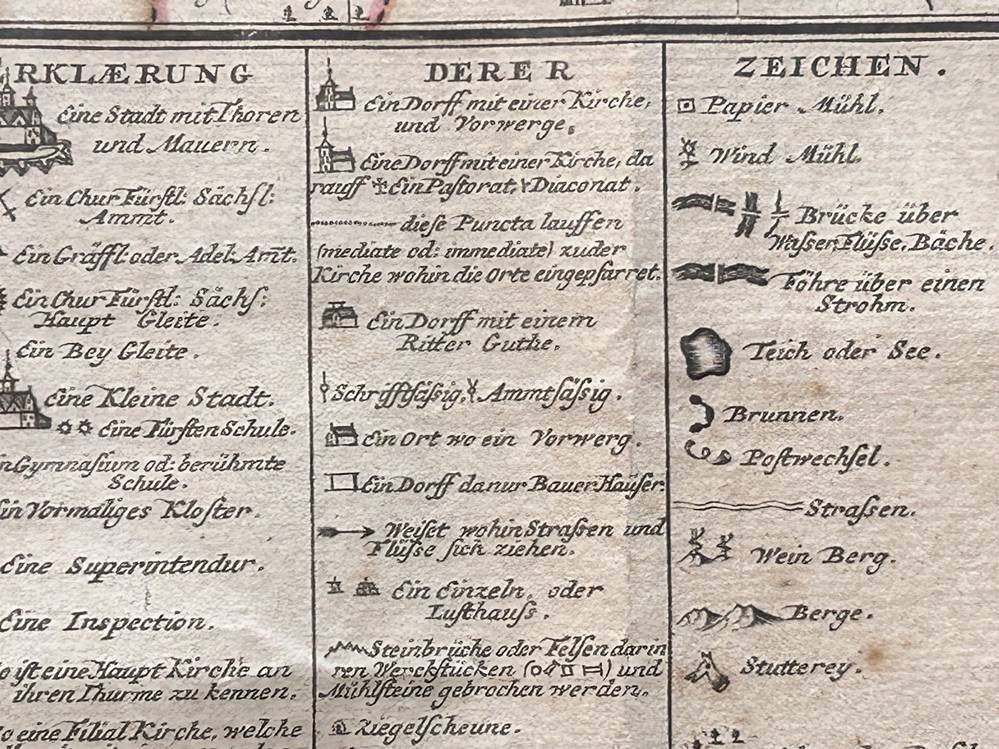 RKLÆRUNG
Eine Stadt mit Thoren
und Mauern.
Ein Chur Fürstl: Sächsl:
Ammt.
Ein Gräffl: oder Adel: Amt.
Ein Chur Fürstl: Sächs:
Haupt Gleite.
Ein Bey Gleite.
Eine Kleine Stadt.
Eine Fürsten Schule.
Gymnasium od: berühmte
Schule.
Ein Vormaliges Kloster.
Eine Superintendur.
Eine Inspection.
o ist eine Haupt Kirche an
ihren Thurme zu kennen.
o eine Filial Kirche, welche
DERER
Ein Dorff mit einer Kirche,
und Vorwerge.
Eine Dorff mit einer Kirche, da
rauff Ein Pastorat, Diaconat.
diese Puncta lauffen
(mediate od: immediate) zu der
Kirche wohin die Orte eingepfarret.
Ein Dorff mit einem
Ritter Guthe.
Schrifftsässig, Ammtsässig.
Ein Ort wo ein Vorwerg.
Ein Dorff da nur Bauer Häuser
Weiset wohin Strassen und
Flüsse sich ziehen.
Ein Einzeln, oder
Lusthauss.
Steinbrüche oder Felsen darin
ren Werckstücken ( ) und
Mühlsteine gebrochen werden.
Ziegelscheune.
ZEICHEN.
Papier Mühl.
Wind Mühl.
Brücke über
Wasser, Flüsse, Bäche.
Föhre über einen
Strohm.
Teich oder See.
Brunnen.
Postwechsel.
Strassen.
Wein Berg.
Berge.
Stutterey.